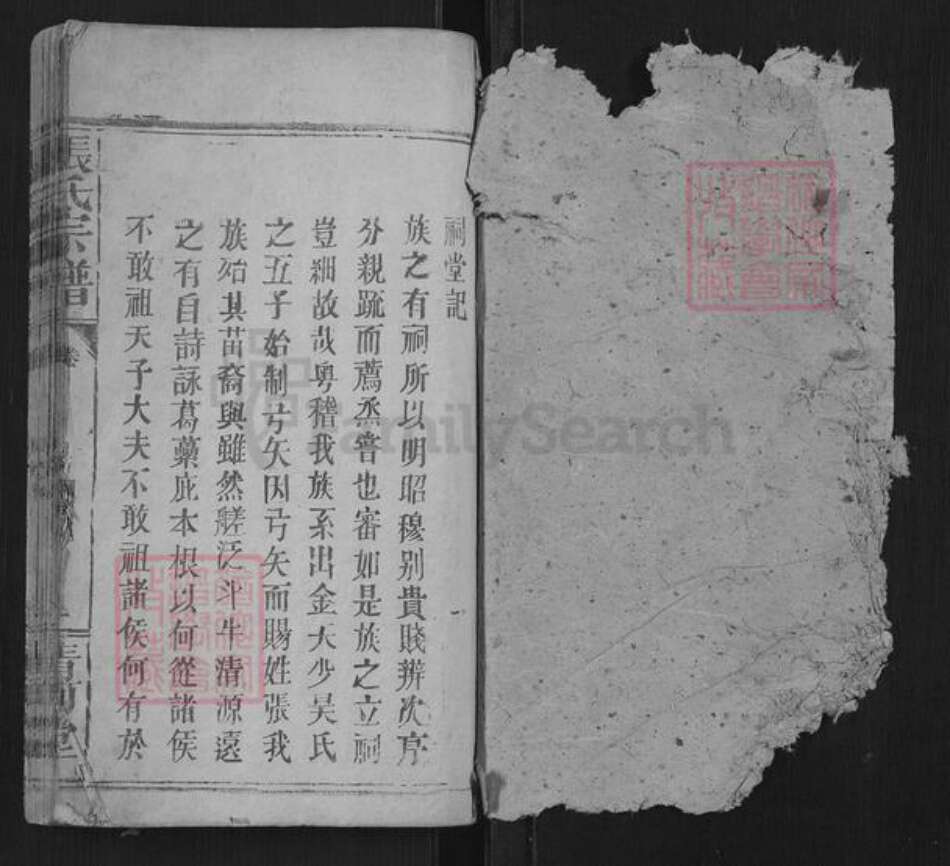 祠堂記
族之有祠所以明昭穆别貴賤辨次序
分親疏而薦烝嘗也審如是族之立祠
豈細故哉粤稽我族系出金天少昊氏
之五子始制弓矢因弓矢而賜姓張我
族殆其苗裔與雖然艖泛斗牛清源遠
之有自詩詠葛藟庇本根以何從諸侯
不敢祖天子大夫不敢祖諸侯何有於
張氏宗譜
卷
清河堂
FamilySearch